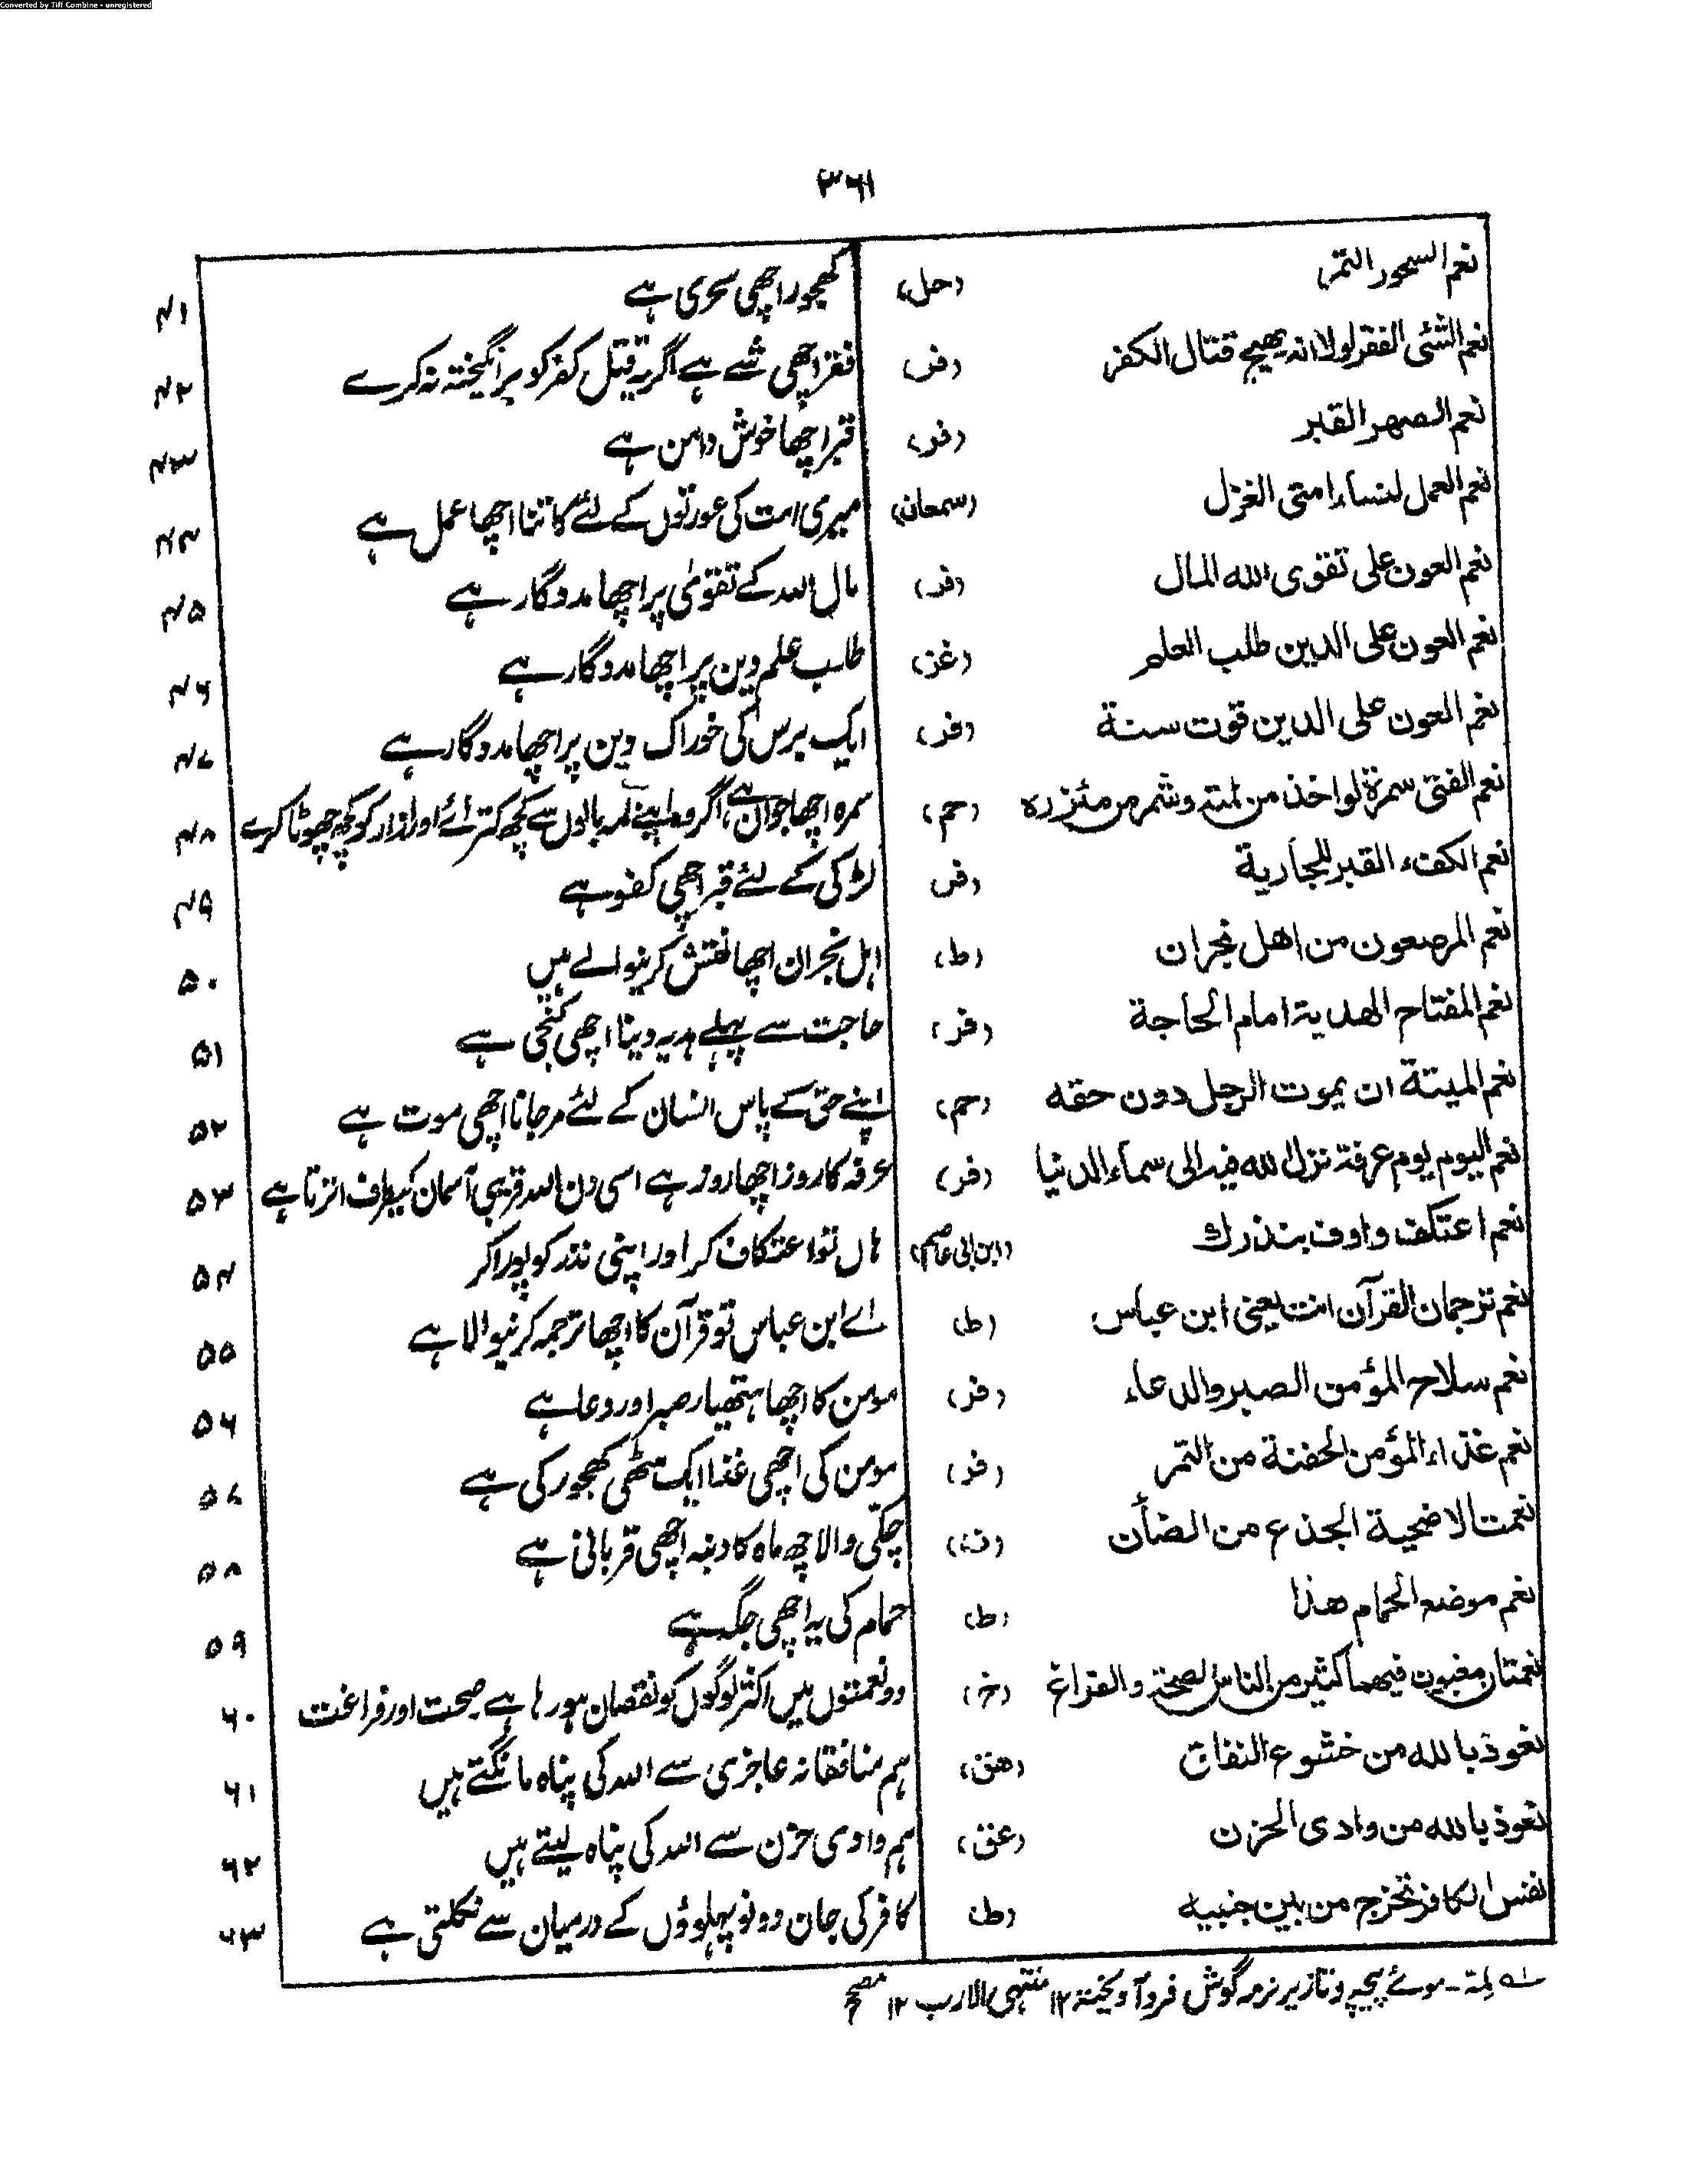 Converted by Tiff Combine - unregistered
۳۶۱
نعم السحور التمر (حل) کھجور اچھی سحری ہے ۴۱
نعم الشئی الفقر لولا انه یهیج قتال الکفر (فر) فقر اچھی شے ہے اگر یہ قتل کفر کو برانگیختہ نہ کرے ۴۲
نعم الصهر القبر (فر) قبر اچھا خوش دامن ہے ۴۳
نعم العمل لنساء امتی الغزل (سمعان) میری امت کی عورتوں کے لئے کاتنا اچھا عمل ہے ۴۴
نعم العون علی تقوی الله المال (فر) مال اللہ کے تقویٰ پر اچھا مددگار ہے ۴۵
نعم العون علی الدین طلب العلم (غز) طلب علم دین پر اچھا مددگار ہے ۴۶
نعم العون علی الدین قوت سنة (فر) ایک برس کی خوراک دین پر اچھا مددگار ہے ۴۷
نعم الفتی سمرة لو اخذ من لمته وشمر من مئزره (حم) سمرہ اچھا جوان ہے اگر وہ اپنے لمہ بالوں سے کچھ کترائے اور ازار کو کچھ چھوٹا کرے ۴۸
نعم الکفء القبر للجاریة (فر) لڑکی کے لئے قبر اچھی کفو ہے ۴۹
نعم المرصعون من اهل نجران (ط) اہل نجران اچھا نقش کرنیوالے ہیں ۵۰
نعم المفتاح الهدیة امام الحاجة (فر) حاجت سے پہلے ہدیہ دینا اچھی کنجی ہے ۵۱
نعم المیتة ان یموت الرجل دون حقه (حم) اپنے حق کے پاس انسان کے لئے مرجانا اچھی موت ہے ۵۲
نعم الیوم یوم عرفة نزل الله فیه الی سماء الدنیا (فر) عرفہ کا روز اچھا روز ہے اسی دن اللہ قریبی آسمان کیطرف اترتا ہے ۵۳
نعم اعتکف واوف بنذرك (ابن ابی عاصم) ہاں تو اعتکاف کر اور اپنی نذر کو پورا کر ۵۴
نعم ترجمان القرآن انت یعنی ابن عباس (ط) اے ابن عباس تو قرآن کا اچھا ترجمہ کرنیوالا ہے ۵۵
نعم سلاح المؤمن الصبر والدعاء (فر) مومن کا اچھا ہتھیار صبر اور دعا ہے ۵۶
نعم غذاء المؤمن الحفنة من التمر (فر) مومن کی اچھی غذا ایک مٹھی کھجور کی ہے ۵۷
نعمت الاضحیة الجذع من الضأن (ت) چکی والا چھ ماہ کا دنبہ اچھی قربانی ہے ۵۸
نعم موضع الحمام هذا (ط) حمام کی یہ اچھی جگہ ہے ۵۹
نعمتان مغبون فیهما کثیر من الناس الصحة والفراغ (خ) دو نعمتوں میں اکثر لوگوں کو نقصان ہو رہا ہے صحت اور فراغت ۶۰
نعوذ بالله من خشوع النفاق (هق) ہم منافقانہ عاجزی سے اللہ کی پناہ مانگتے ہیں ۶۱
نعوذ بالله من وادی الحزن (عق) ہم وادی حزن سے اللہ کی پناہ لیتے ہیں ۶۲
نفس الکافر تخرج من بین جنبیه (ط) کافر کی جان دونو پہلوؤں کے درمیان سے نکلتی ہے ۶۳
لمة ۔ موئے پیچہ و تا زیر نرمہ گوش فرود آویختہ ۱۲ منتہی الارب ۱۲ مصحح